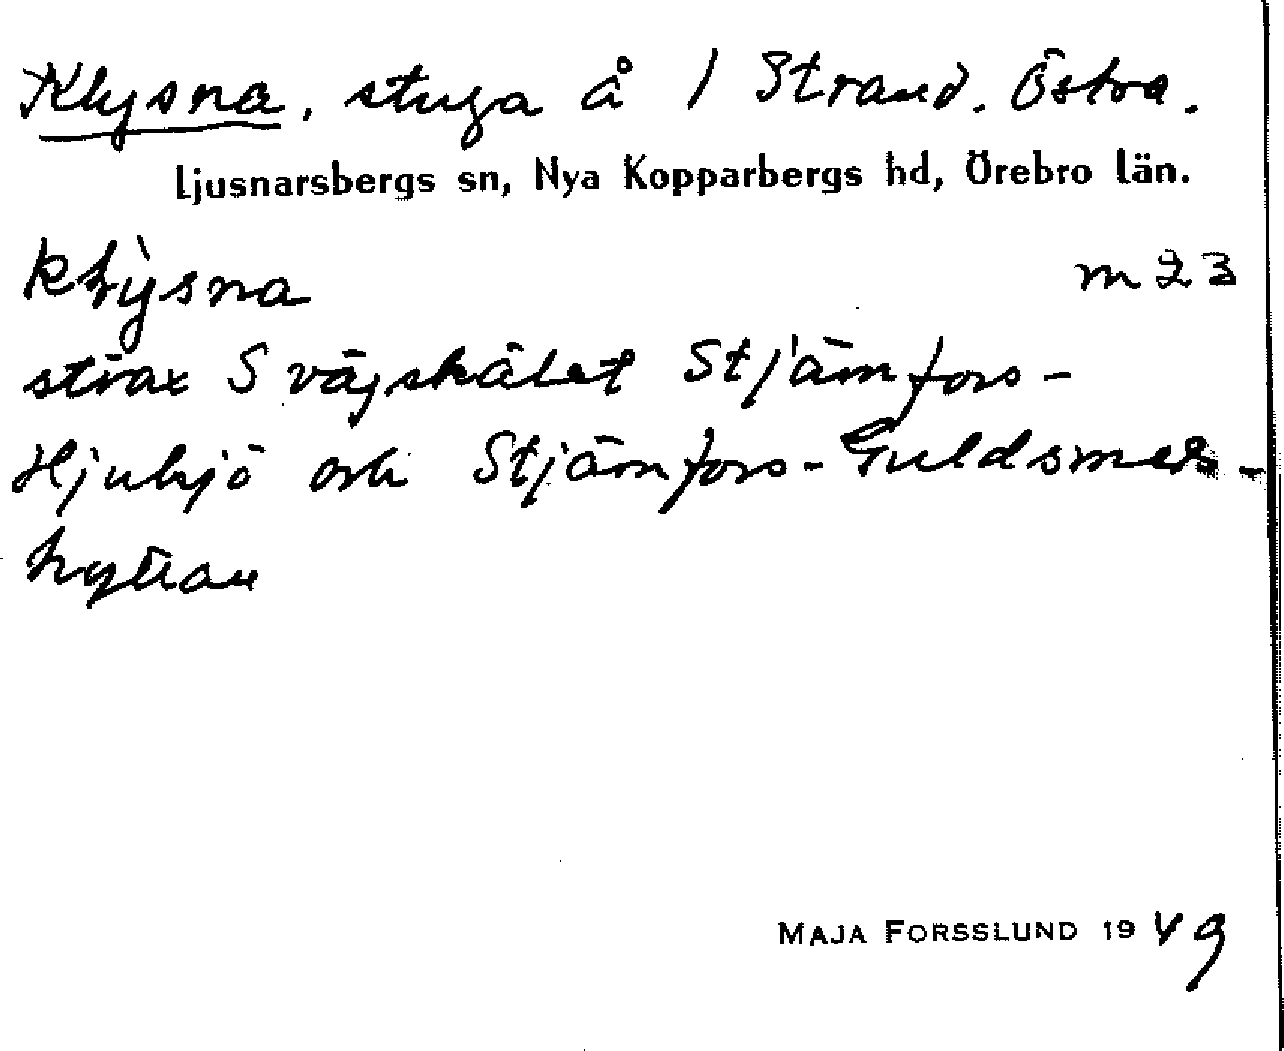 Klysna, stuga å 1 Strand. Östra.
Ljusnarsbergs sn, Nya Kopparbergs hd, Örebro län.
klỳsna m 23
strax S vägskälet Stjärnfors-
Hjulsjö och Stjärnfors-Guldsmes-
hyttan
MAJA FORSSLUND 1949